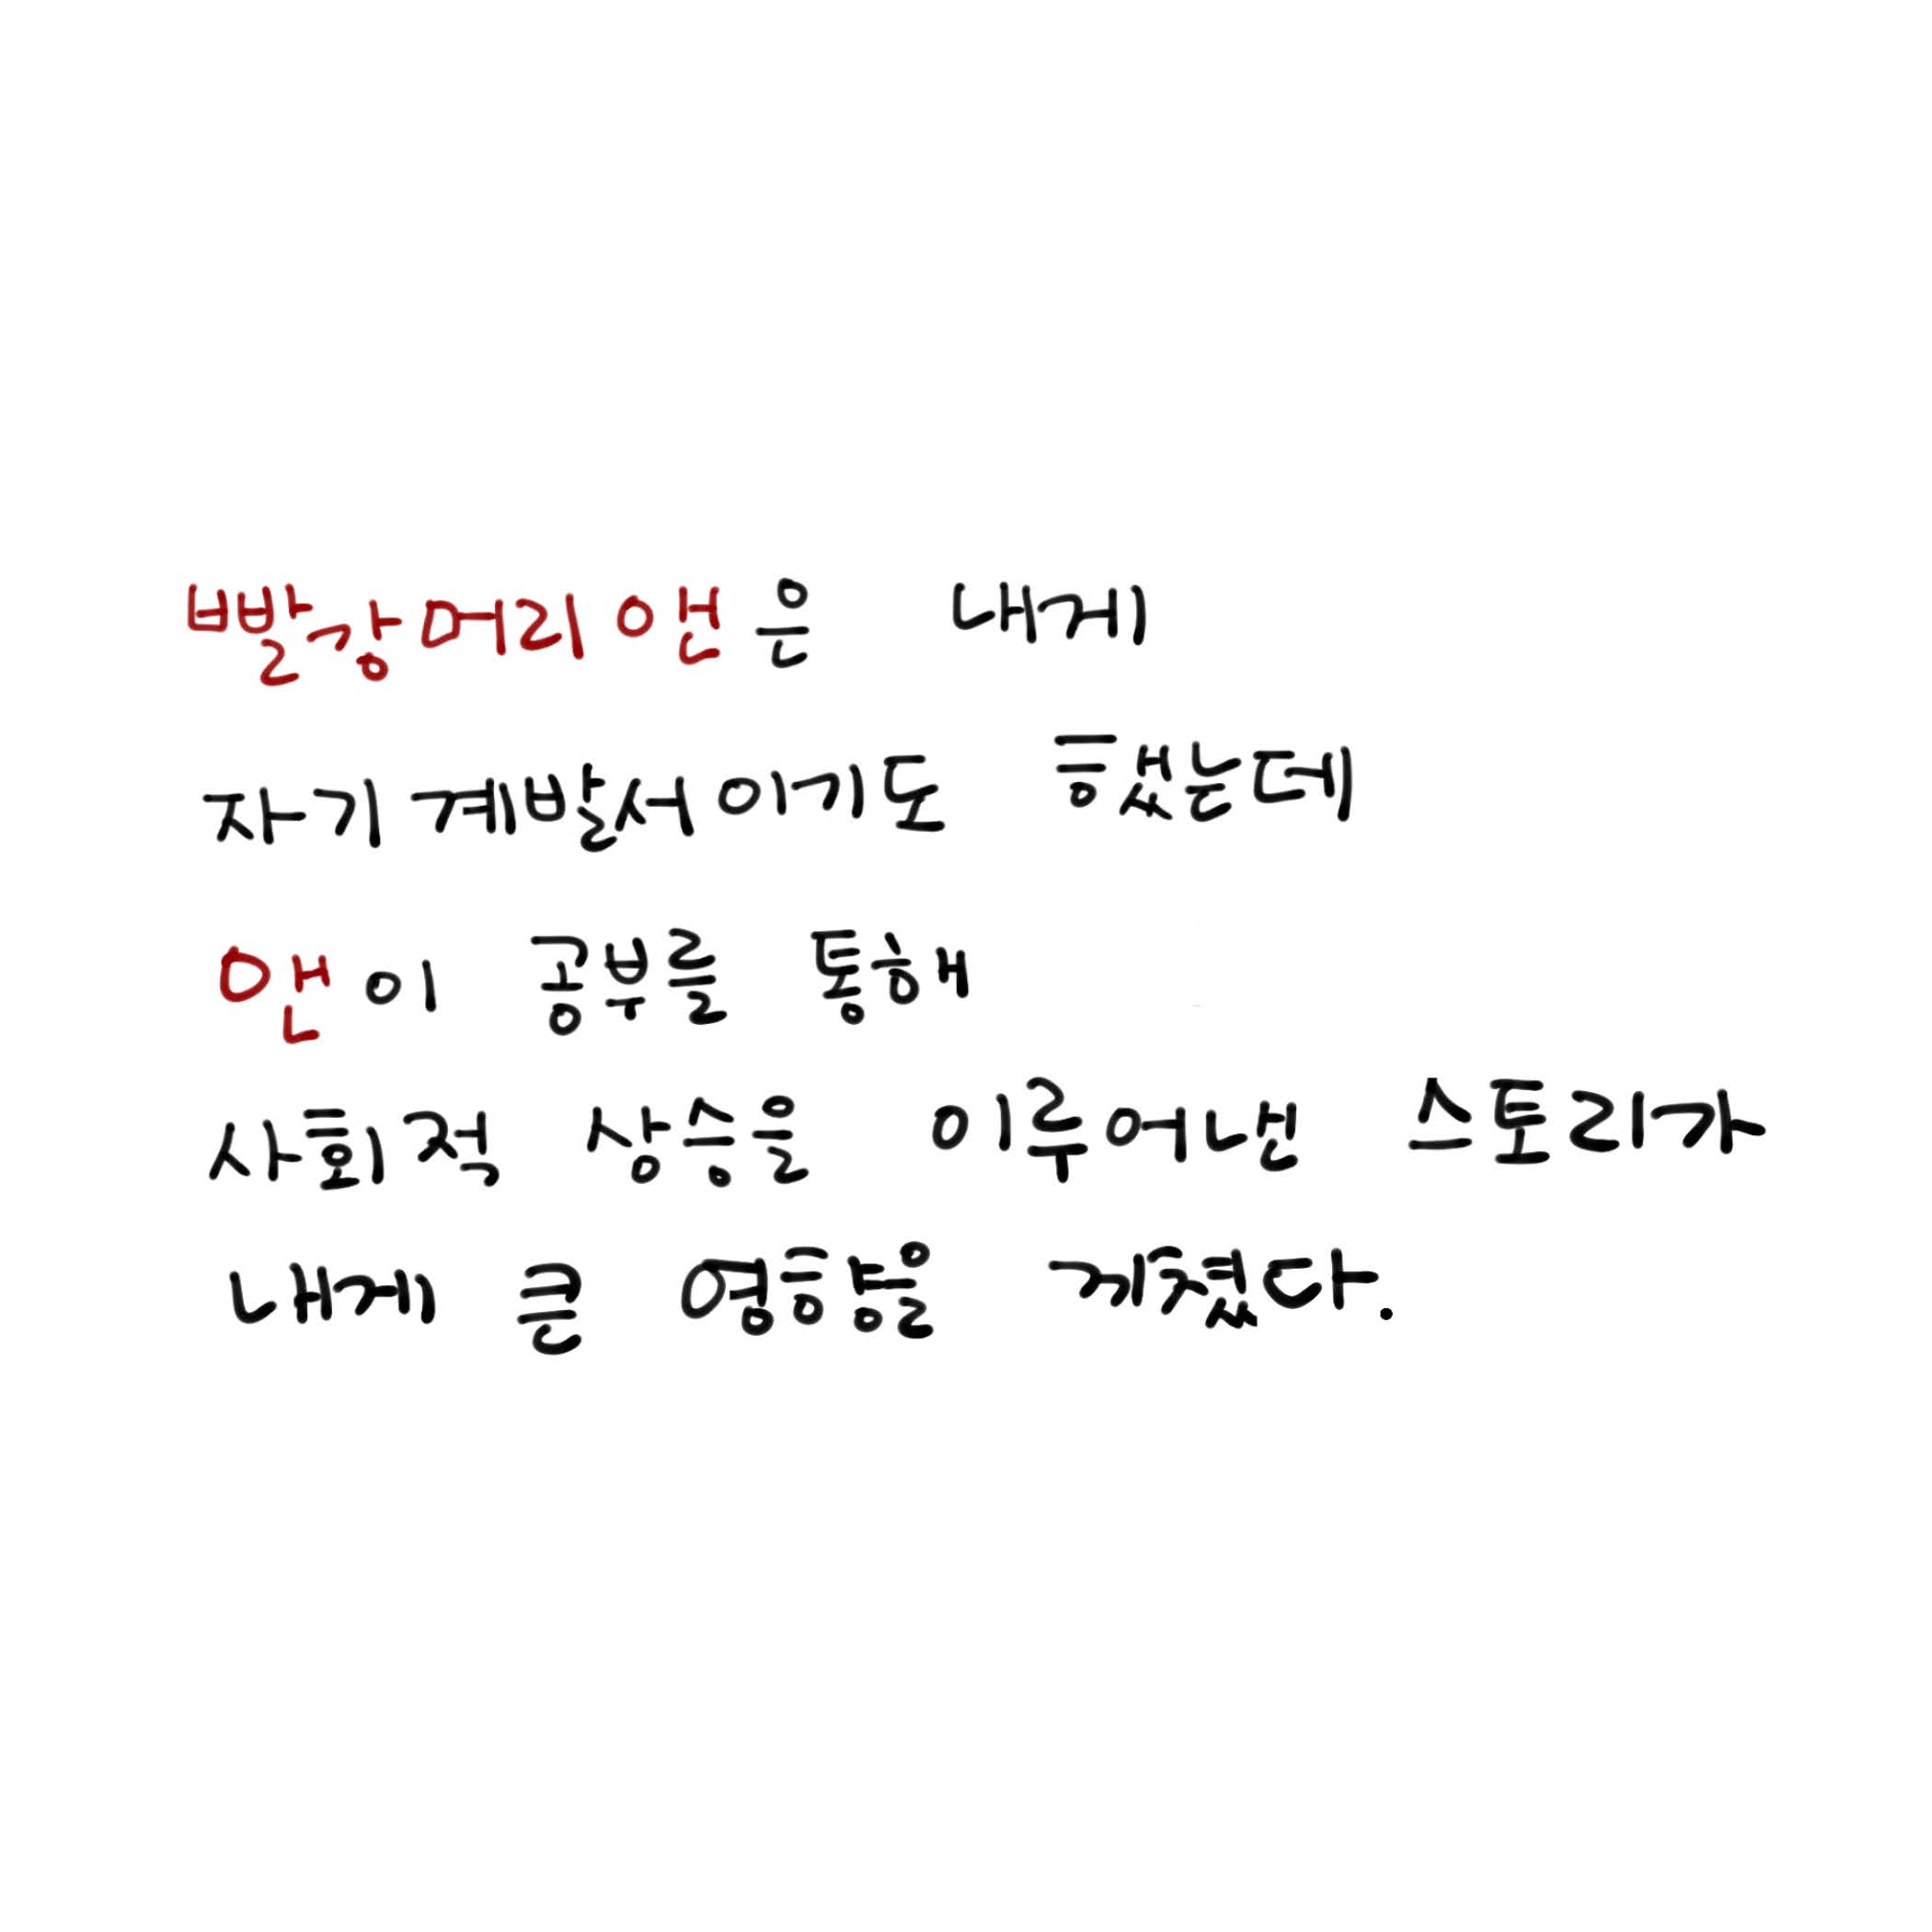 빨강머리 앤은 내게
자기계발서이기도 했는데
앤이 공부를 통해
사회적 상승을 이루어낸 스토리가
내게 큰 영향을 끼쳤다.